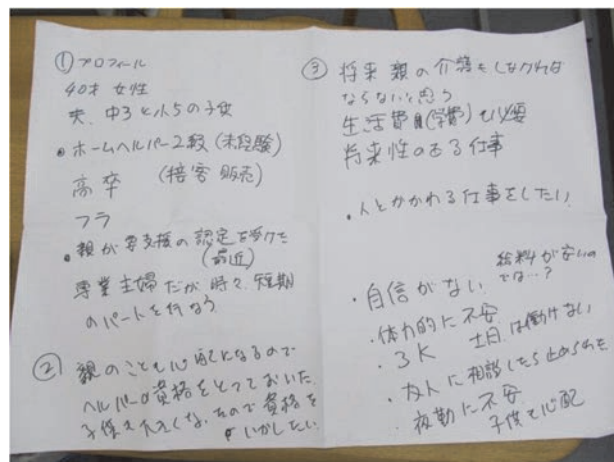 ① プロフィール
40才 女性
夫、中3と小5の子女
• ホームヘルパー2級(未経験)
高卒 (接客 販売)
フラ
• 親が要支援の認定を受けた
(最近)
専業主婦だが時々、短期
のパートを行なう
② 親のことも心配になるので
ヘルパーの資格をとっておいた。
子供も大きくなったので資格を
いかしたい
③ 将来 親の介護もしなければ
ならないと思う
生活費(学費)も必要
将来性のある仕事
・人とかかわる仕事をしたい
給料が安いの
では…?
・自信がない
・体力的に不安
・3K 土日は働けない
・友人に相談したら止められた
・夜勤に不安
子供も心配